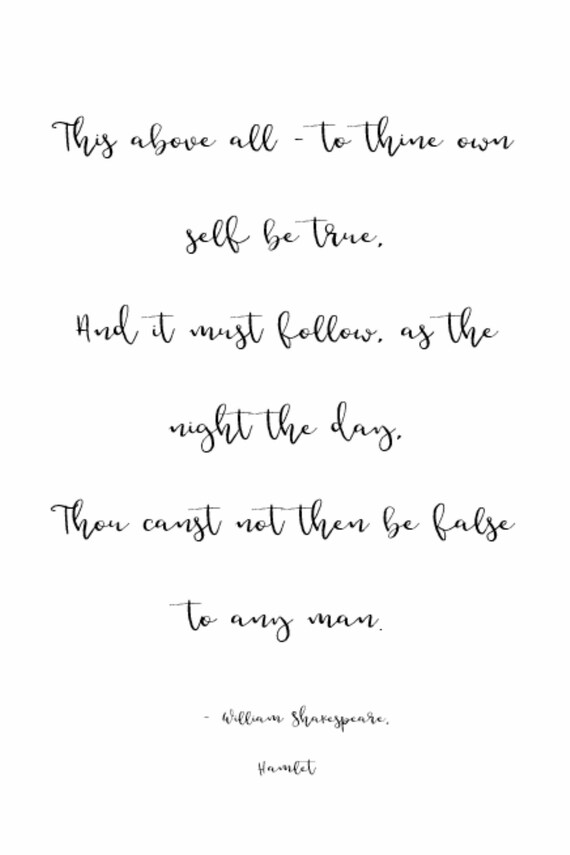 This above all - to thine own
self be true,
And it must follow, as the
night the day,
Thou canst not then be false
to any man.
- William Shakespeare,
Hamlet